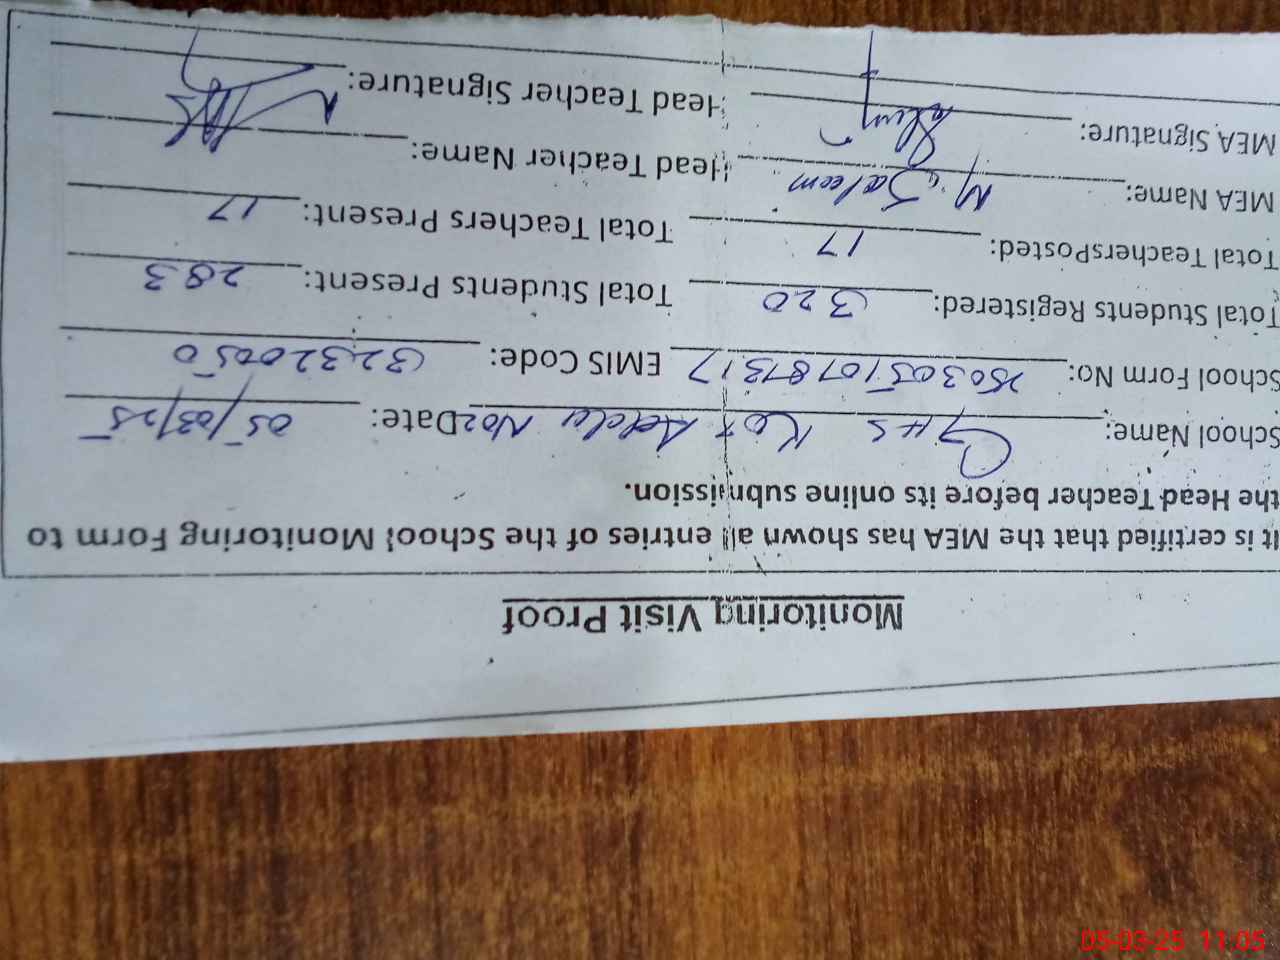 Monitoring Visit Proof
It is certified that the MEA has shown all entries of the School Monitoring Form to
the Head Teacher before its online submission.
School Name: GHS Kot Addu No2 Date: 05/03/25
School Form No: EMIS Code: 32320050
Total Students Registered: 320 Total Students Present: 283
Total TeachersPosted: 17 Total Teachers Present: 17
MEA Name: M. Saleem Head Teacher Name:
MEA Signature: Head Teacher Signature:
05-03-25 11:05